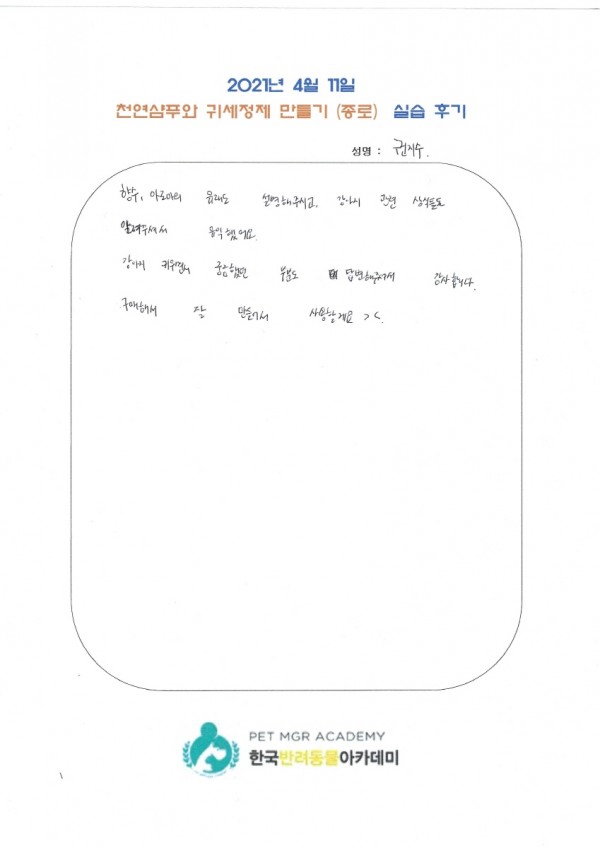 2021년 4월 11일
천연샴푸와 귀세정제 만들기 (종로) 실습 후기
성명 : 권지수.
향수, 아로마의 유래도 설명해주시고, 강아지 관련 상식들도
알려주셔서 유익했어요.
강아지 키우면서 궁금했던 부분도 답변해주셔서 감사합니다.
구매해서 잘 만들어서 사용할게요 > <.
PET MGR ACADEMY
한국반려동물아카데미